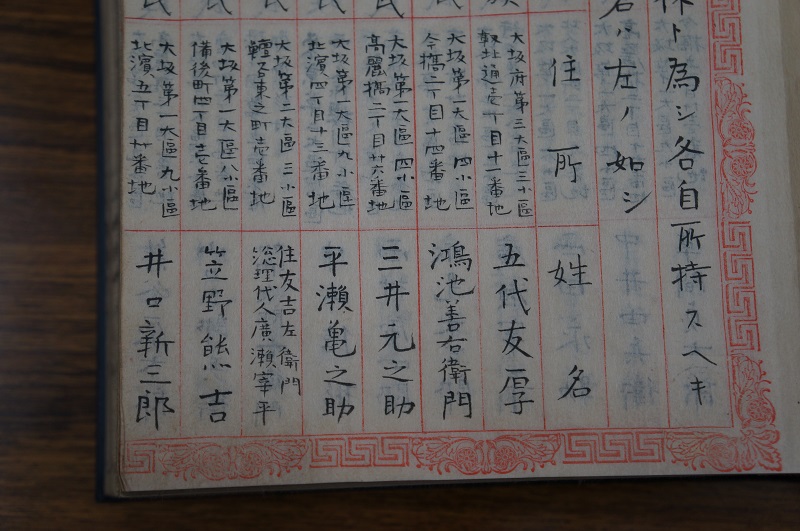 ト為シ各自所持スヘキ
左ノ如シ
住所 姓名
大坂府第三大區三小區
靱北通壱丁目十一番地
五代友厚
大坂第一大區四小區
今橋二丁目十四番地
鴻池善右衛門
大坂第一大區四小區
高麗橋二丁目廿六番地
三井元之助
大坂第一大區九小區
北濱四丁目十三番地
平瀬亀之助
大坂第二大區三小區
鰻谷東之町壱番地
住友吉左衛門
総理代人廣瀬宰平
大坂第一大區八小區
備後町四丁目壱番地
笠野熊吉
大坂第一大區九小區
北濱五丁目廿番地
井口新三郎